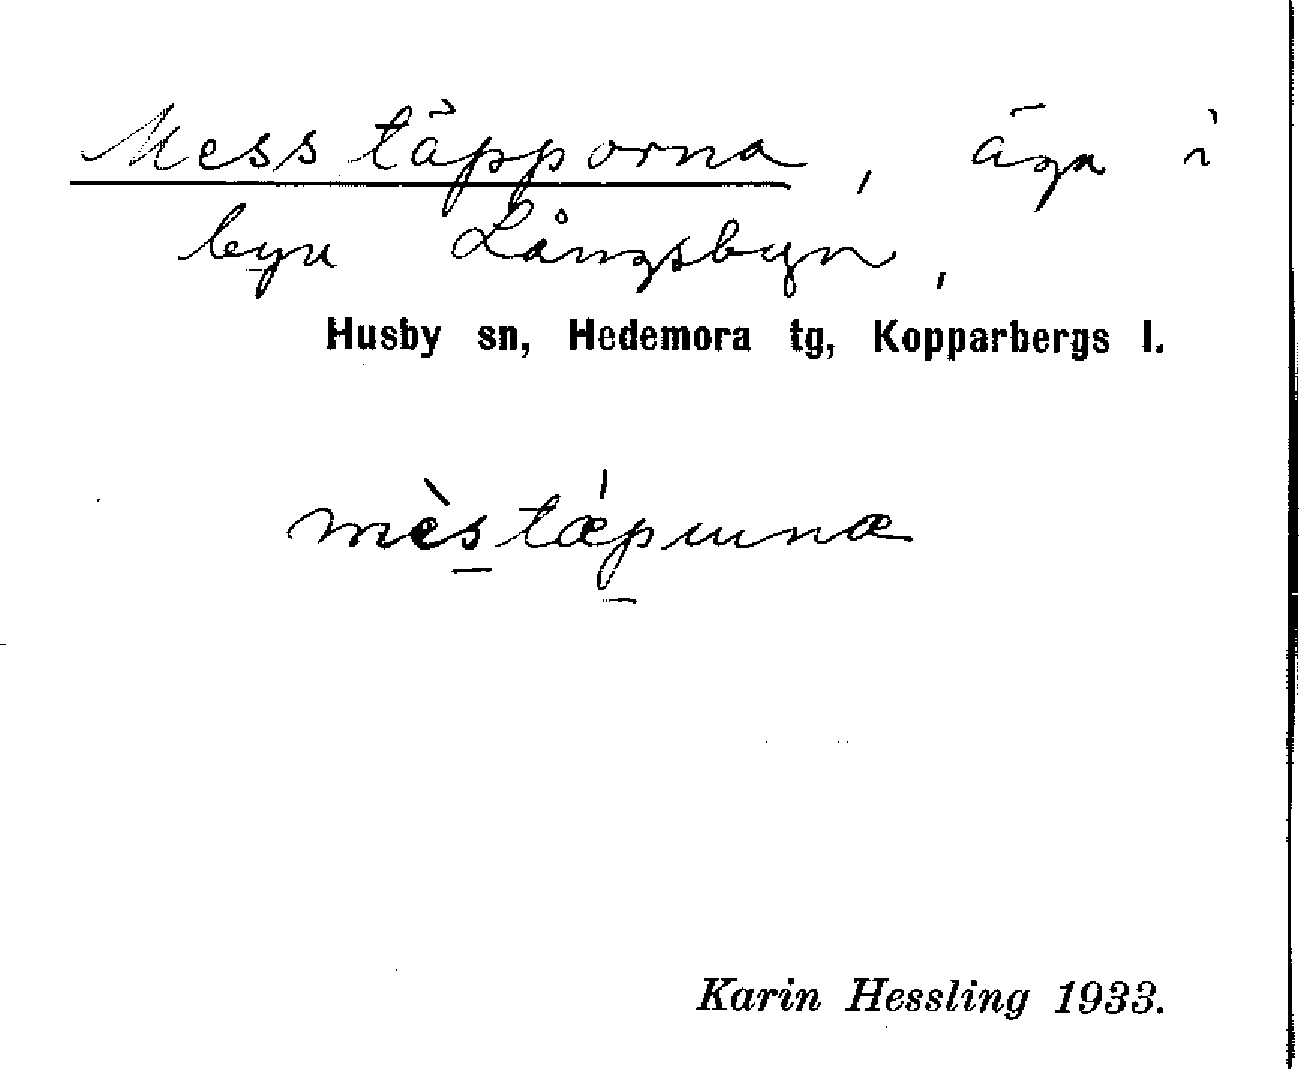 Messtäpporna, äga i
byn Långsbyn,
Husby sn, Hedemora tg, Kopparbergs l.
mèstæpunæ
Karin Hessling 1933.